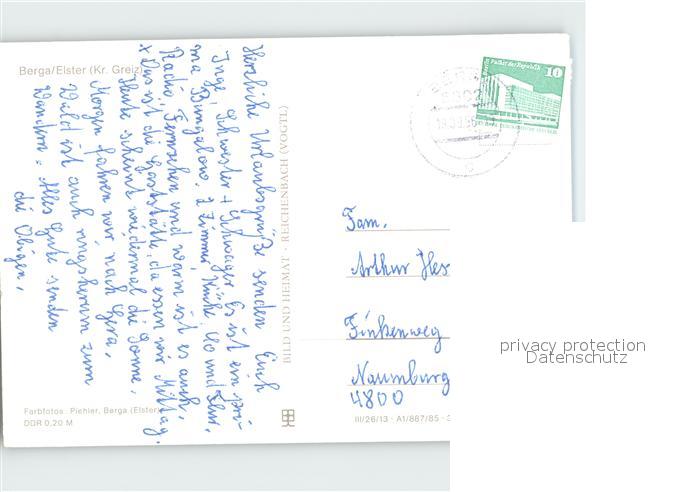 Berga/Elster (Kr. Greiz)
Herzliche Urlaubsgrüße senden Euch
Inge, Schwester + Schwager. Es ist ein pri-
ma Bungalow. 2 Zimmer Küche,
Radio, Fernsehen und warm ist es auch.
x Quo ist die Gaststätte, da essen wir Mittag.
Heute scheint die Sonne,
Morgen fahren wir nach Gera.
Wald ist auch ringsherum zum
Wandern. Alles Gute senden
die Obigen.
BILD UND HEIMAT · REICHENBACH (VOGTL)
Farbfotos: Piehler, Berga (Elster)
DDR 0,20 M
III/26/13 · A1/887/85 ·
Palast der Republik
10
Fam.
Arthur Hes
Finkenweg
Naumburg
4800
privacy protection
Datenschutz